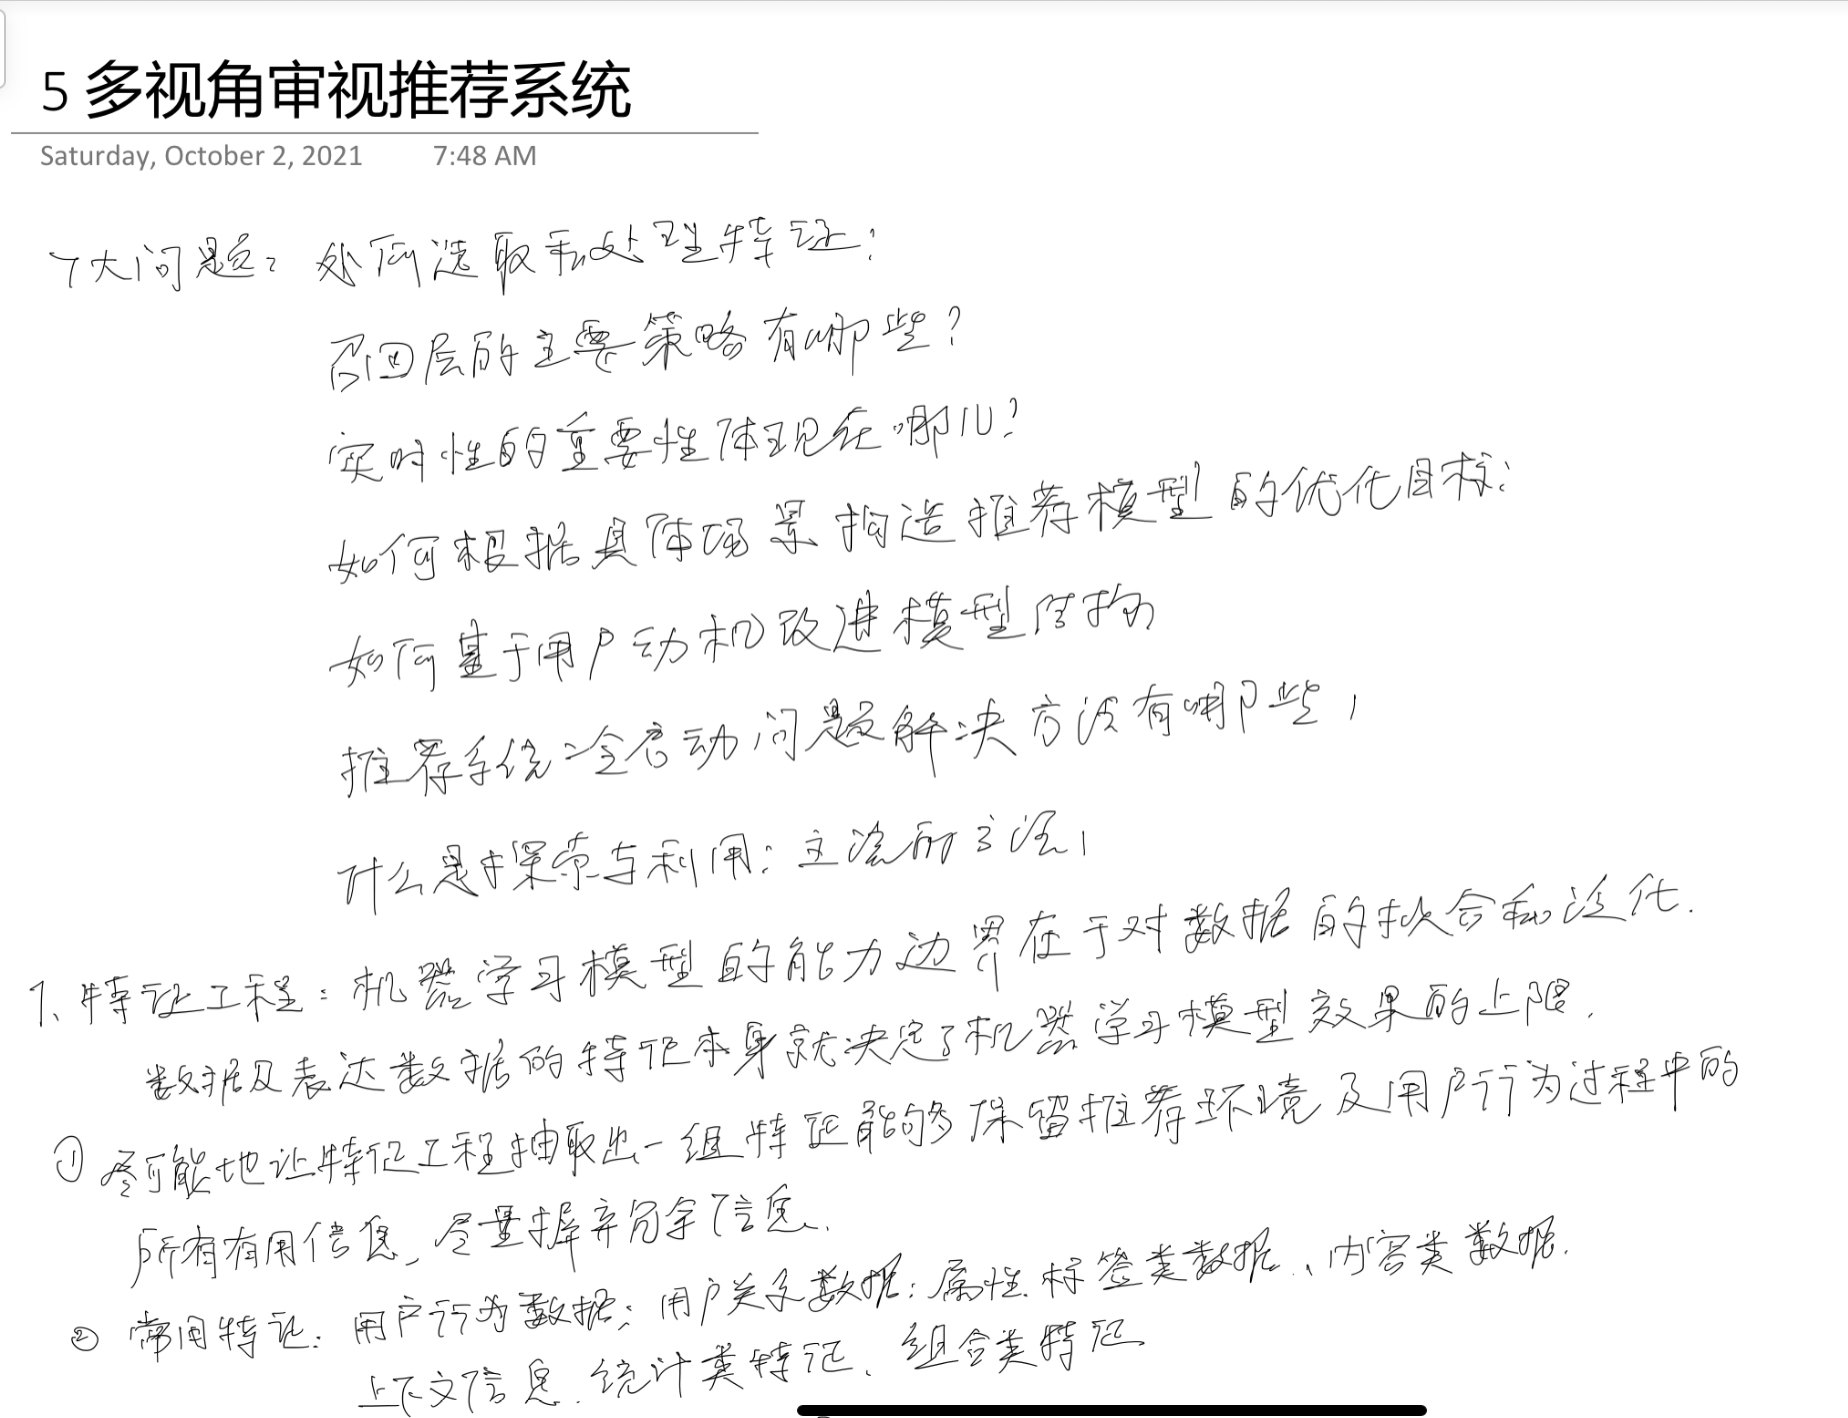 5 多视角审视推荐系统
Saturday, October 2, 2021 7:48 AM
7大问题: 如何选取和处理特征?
召回层的主要策略有哪些?
实时性的重要性体现在哪儿?
如何根据具体场景构造推荐模型的优化目标?
如何基于用户动机改进模型结构
推荐系统冷启动问题解决方法有哪些,
什么是探索与利用; 主流的方法,
1、特征工程: 机器学习模型的能力边界在于对数据的拟合和泛化.
数据及表达数据的特征本身就决定了机器学习模型效果的上限.
① 尽可能地让特征工程抽取出一组特征能够保留推荐环境及用户行为过程中的
所有有用信息, 尽量摒弃冗余信息.
② 常用特征: 用户行为数据; 用户关系数据; 属性.标签类数据、内容类数据.
上下文信息. 统计类特征、组合类特征